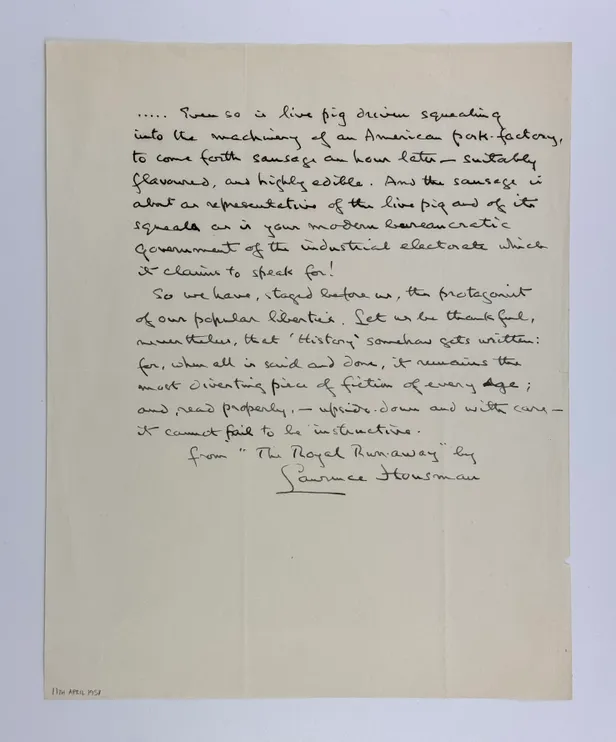 ..... Even so is live pig driven squealing
into the machinery of an American pork-factory,
to come forth sausage an hour later — suitably
flavoured, and highly edible. And the sausage is
about as representative of the live pig and of its
squeals as is your modern bureaucratic
government of the industrial electorate which
it claims to speak for!
So we have, staged before us, the protagonist
of our popular liberties. Let us be thankful,
nevertheless, that 'History' somehow gets written:
for, when all is said and done, it remains the
most diverting piece of fiction of every age;
and, read properly, — upside-down and with care —
it cannot fail to be instructive.
from "The Royal Runaway" by
Laurence Housman
11th APRIL 1951